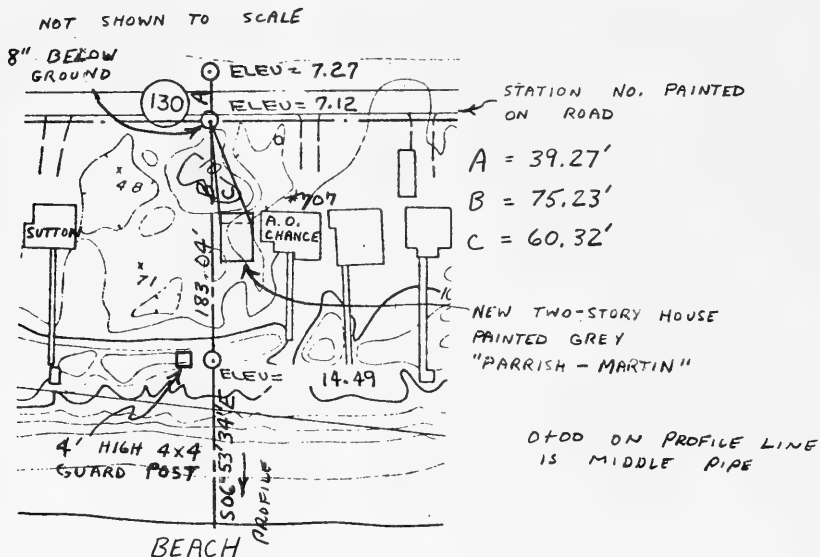 NOT SHOWN TO SCALE
8" BELOW
GROUND
ELEV = 7.27
130
A
ELEV = 7.12
STATION NO. PAINTED
ON ROAD
A = 39.27'
B = 75.23'
C = 60.32'
B
C
48
#707
SUTTON
A.O.
CHANCE
71
183.04'
10
NEW TWO-STORY HOUSE
PAINTED GREY
"PARRISH - MARTIN"
ELEV =
14.49
4' HIGH 4x4
GUARD POST
S06°53'34"E
PROFILE
0+00 ON PROFILE LINE
IS MIDDLE PIPE
BEACH